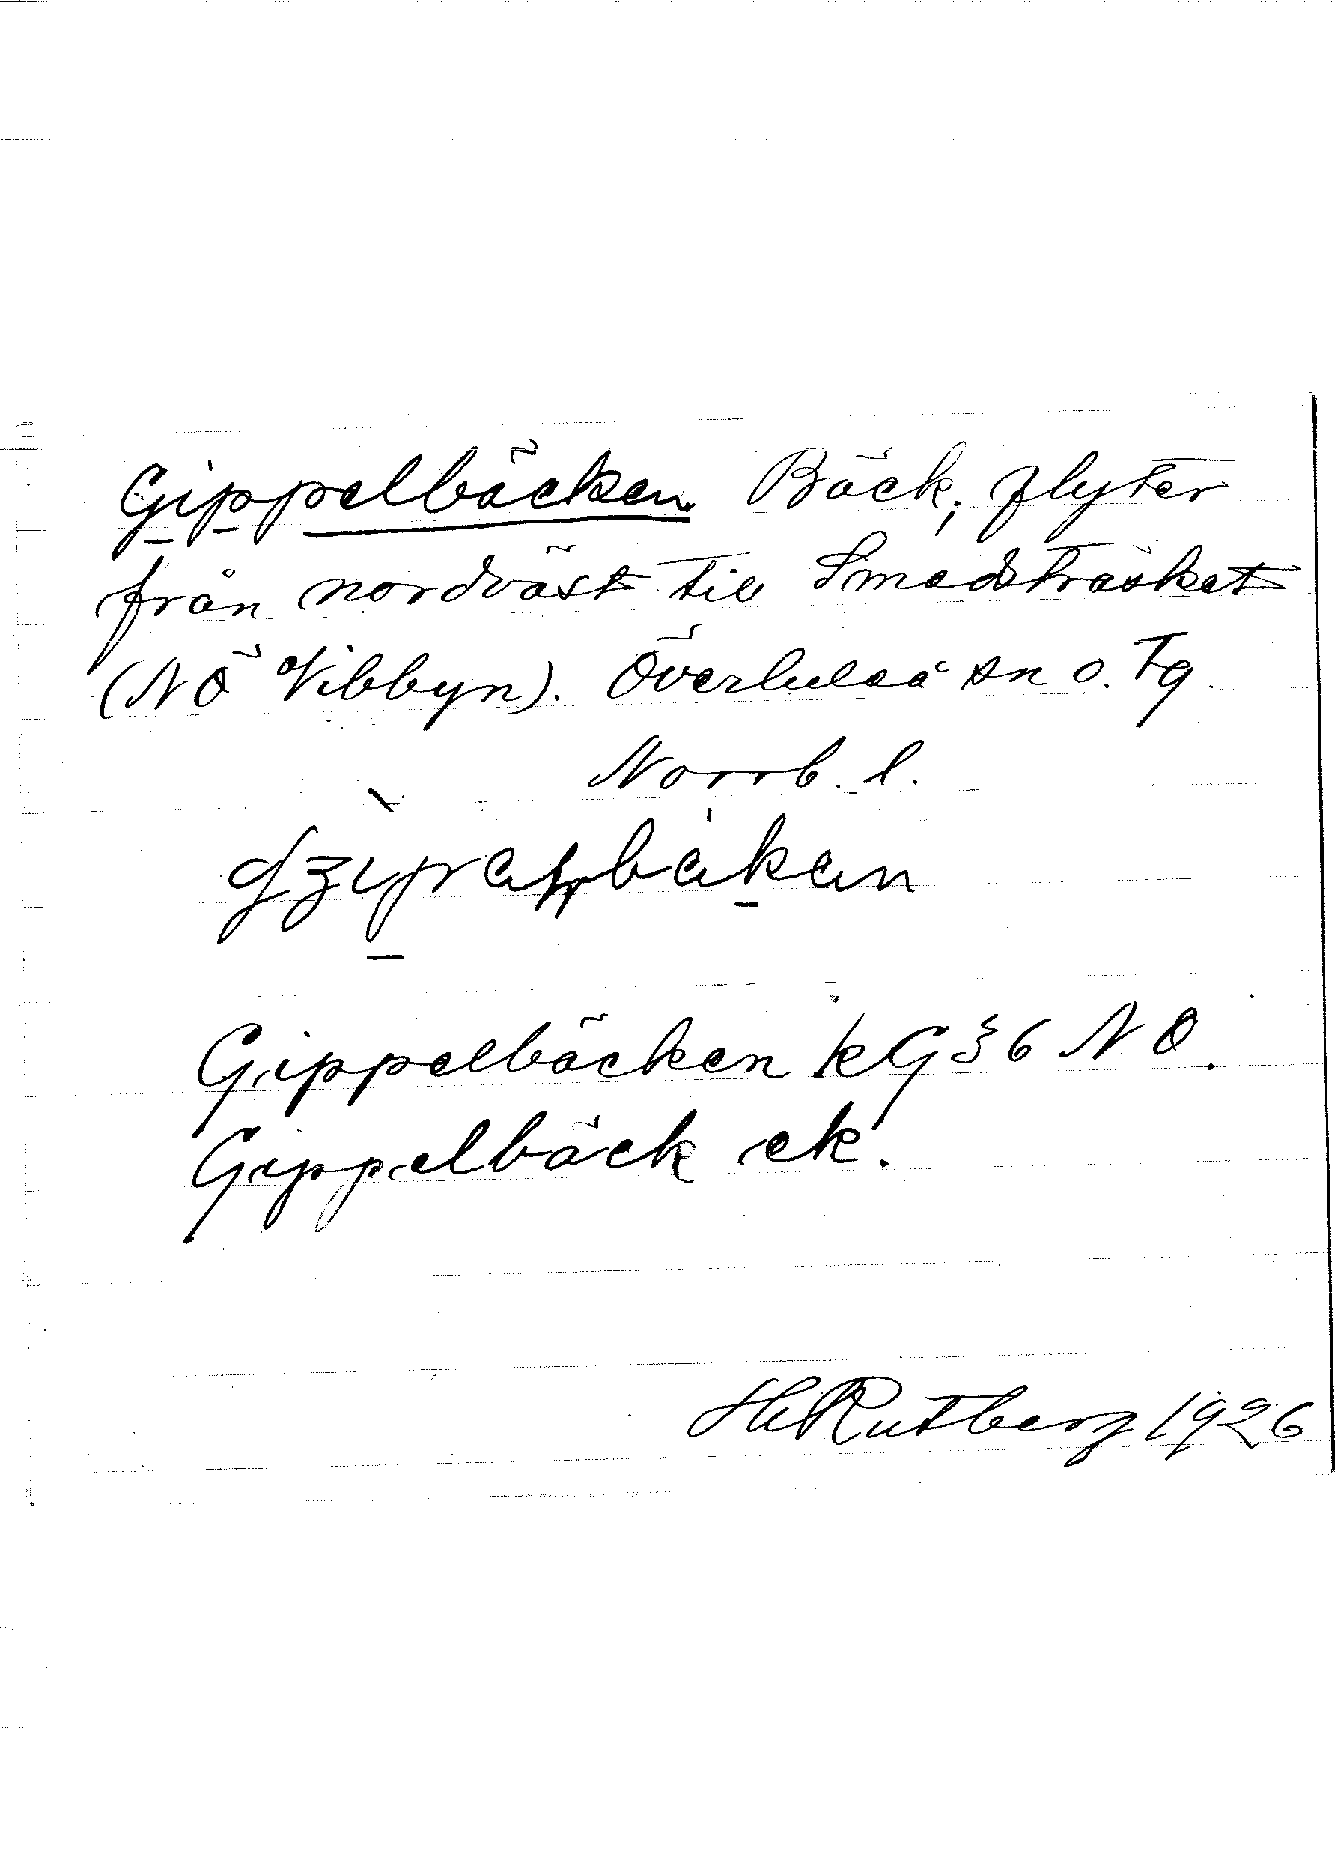 Gippelbäcken Bäck, flyter
från nordväst till Smedsträsket
(NÖ Vibbyn). Överluleå sn o. Tg
Norrb. l.
Gippelbäcken kG 36 NO.
Gippelbäck ek.
HRutberg 1926